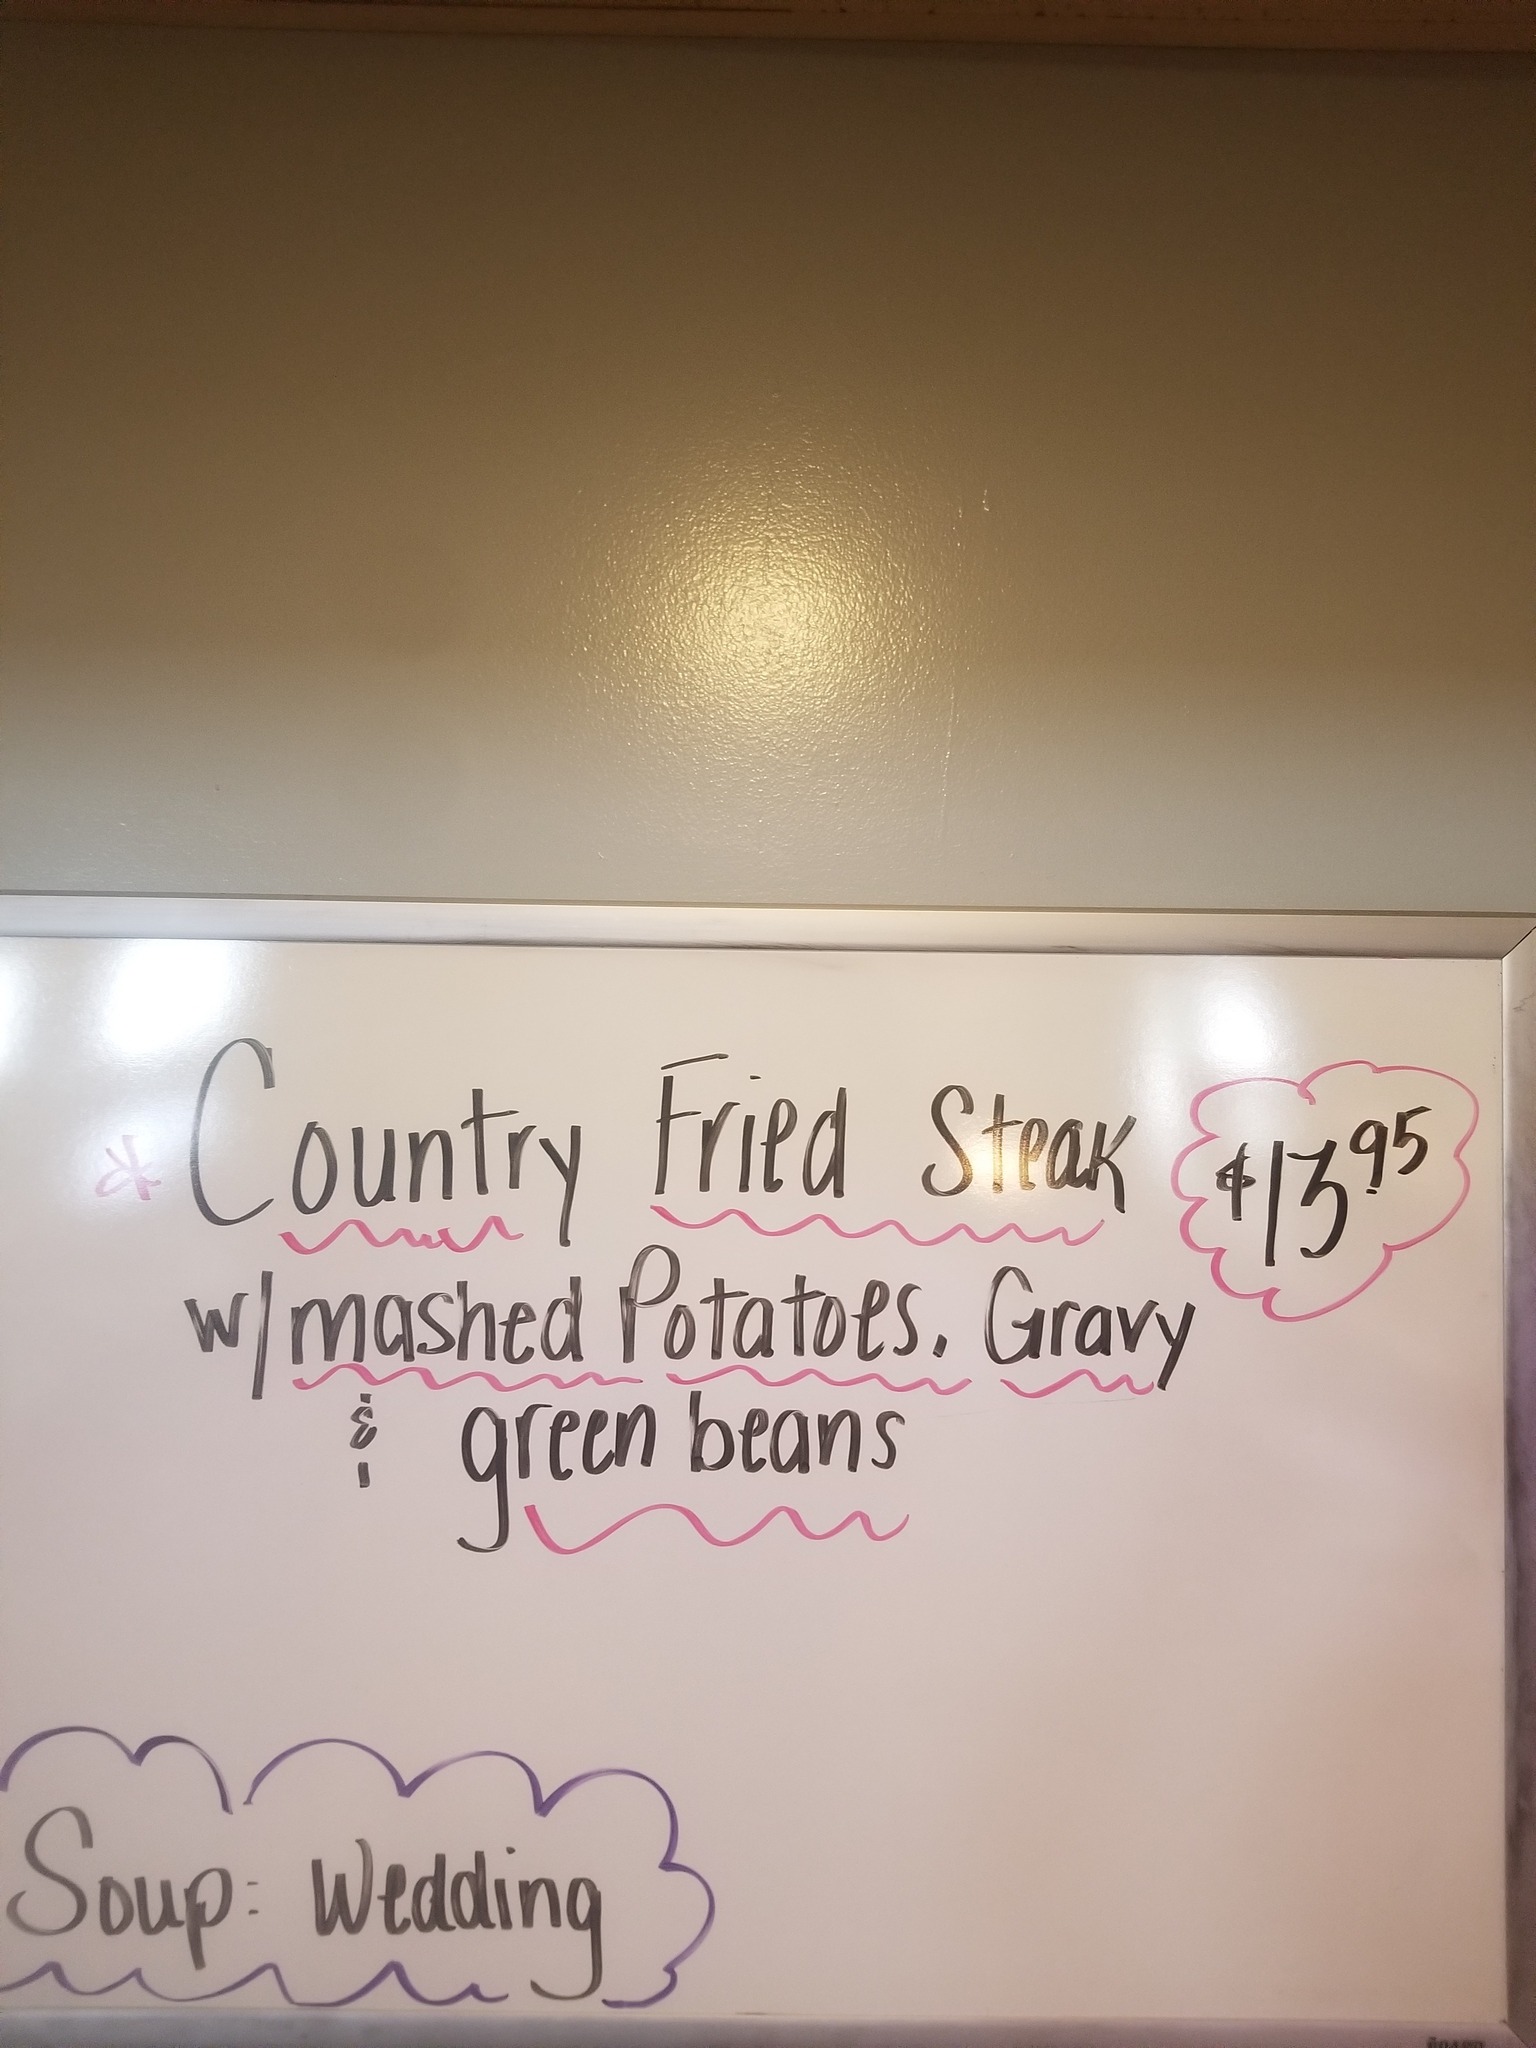 * Country Fried Steak $13.95
w/mashed Potatoes. Gravy
& green beans
Soup: Wedding